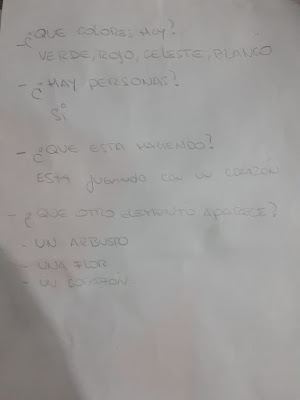 - ¿QUE COLORES HAY?
VERDE, ROJO, CELESTE, BLANCO
- ¿HAY PERSONAS?
Si
- ¿QUE ESTA HACIENDO?
ESTA jugando con un corazón
- ¿QUE OTRO ELEMENTO APARECE?
- UN ARBUSTO
- UNA FLOR
- UN CORAZÓN